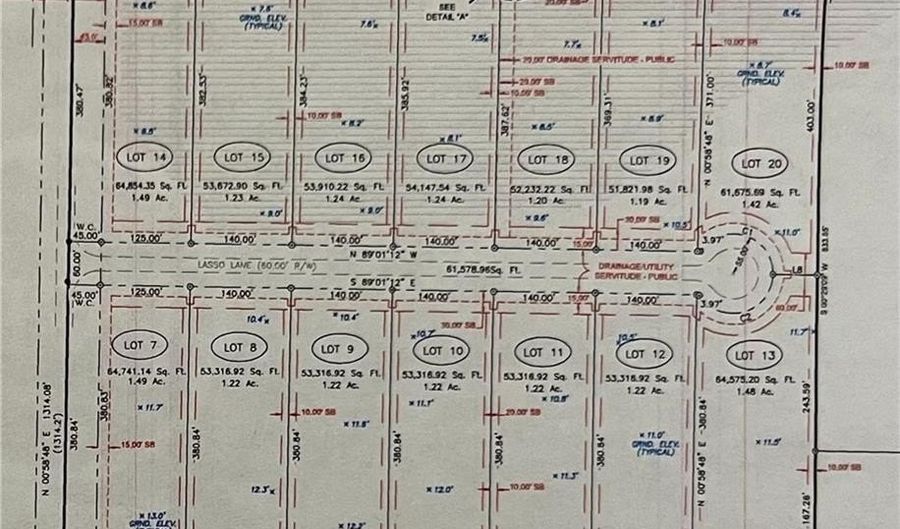 × 8.6'
× 7.6'
GRND. ELEV.
(TYPICAL)
7.6'×
SEE
DETAIL "A"
20.00' SB
× 8.1'
8.4'×
15.00' SB
7.5'×
7.7'×
10.00' SB
20.00' DRAINAGE SERVITUDE - PUBLIC
× 8.7'
GRND. ELEV.
(TYPICAL)
10.00' SB
20.00' SB
10.00' SB
380.47'
380.82'
382.53'
384.23'
385.92'
387.62'
369.31'
N 00°58'48" E 371.00'
403.00'
10.00' SB
× 8.2'
× 8.1'
× 8.5'
× 8.9'
× 8.8'
LOT 14
LOT 15
LOT 16
LOT 17
LOT 18
LOT 19
LOT 20
64,854.35 Sq. Ft.
1.49 Ac.
53,672.90 Sq. Ft.
1.23 Ac.
53,910.22 Sq. Ft.
1.24 Ac.
54,147.54 Sq. Ft.
1.24 Ac.
52,232.22 Sq. Ft.
1.20 Ac.
51,821.98 Sq. Ft.
1.19 Ac.
61,675.69 Sq. Ft.
1.42 Ac.
× 9.0'
× 9.0'
× 9.6'
30.00' SB
× 10.5'
× 11.0'
W.C.
45.00'
125.00'
140.00'
140.00'
140.00'
15.00'
140.00'
3.97'
C1
N 89°01'12" W
60.00'
LASSO LANE (60.00' R/W)
61,578.96Sq. Ft.
DRAINAGE/UTILITY
SERVITUDE - PUBLIC
L8
S 89°01'12" E
45.00'
W.C.
125.00'
140.00'
140.00'
140.00'
15.00'
140.00'
3.97'
C2
60.00'
10.4'×
× 10.4'
× 10.7'
30.00' SB
10.5'
11.7'
LOT 7
LOT 8
LOT 9
LOT 10
LOT 11
LOT 12
LOT 13
64,741.14 Sq. Ft.
1.49 Ac.
53,316.92 Sq. Ft.
1.22 Ac.
53,316.92 Sq. Ft.
1.22 Ac.
53,316.92 Sq. Ft.
1.22 Ac.
53,316.92 Sq. Ft.
1.22 Ac.
53,316.92 Sq. Ft.
1.22 Ac.
64,575.20 Sq. Ft.
1.48 Ac.
× 11.7'
10.00' SB
× 11.8'
× 11.1'
20.00' SB
× 10.8'
N 00°58'48" E 1314.08'
(1314.2')
380.84'
380.83'
380.84'
380.84'
380.84'
380.84'
N 00°58'48" E 380.84'
243.59'
15.00' SB
× 11.0'
GRND. ELEV.
(TYPICAL)
× 11.5'
10.00' SB
12.3'×
× 12.0'
10.00' SB
× 11.3'
167.26'
× 13.0'
GRND. ELEV.
(TYPICAL)
× 12.2'